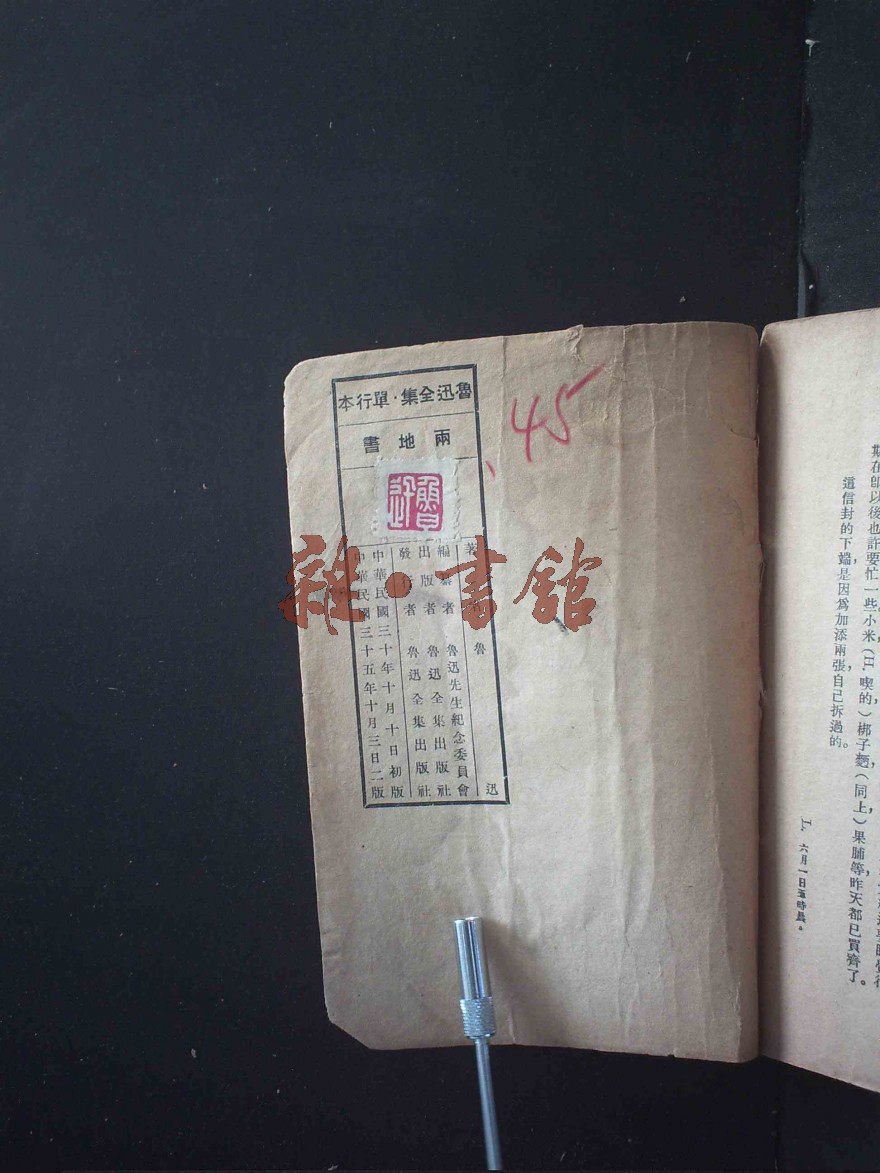 魯迅全集·單行本
兩地書
魯迅
著 魯迅
編纂者 魯迅先生紀念委員會
出版者 魯迅全集出版社
發行者 魯迅全集出版社
中華民國三十年十月十日初版
中華民國三十五年十月三日二版
45
雜·書館
小米（H.喫的）梆子麵（同上）果脯等，昨天都已買齊了。
這信封的下端，是因爲加添兩張，自己拆過的。
L. 六月一日五時晨。